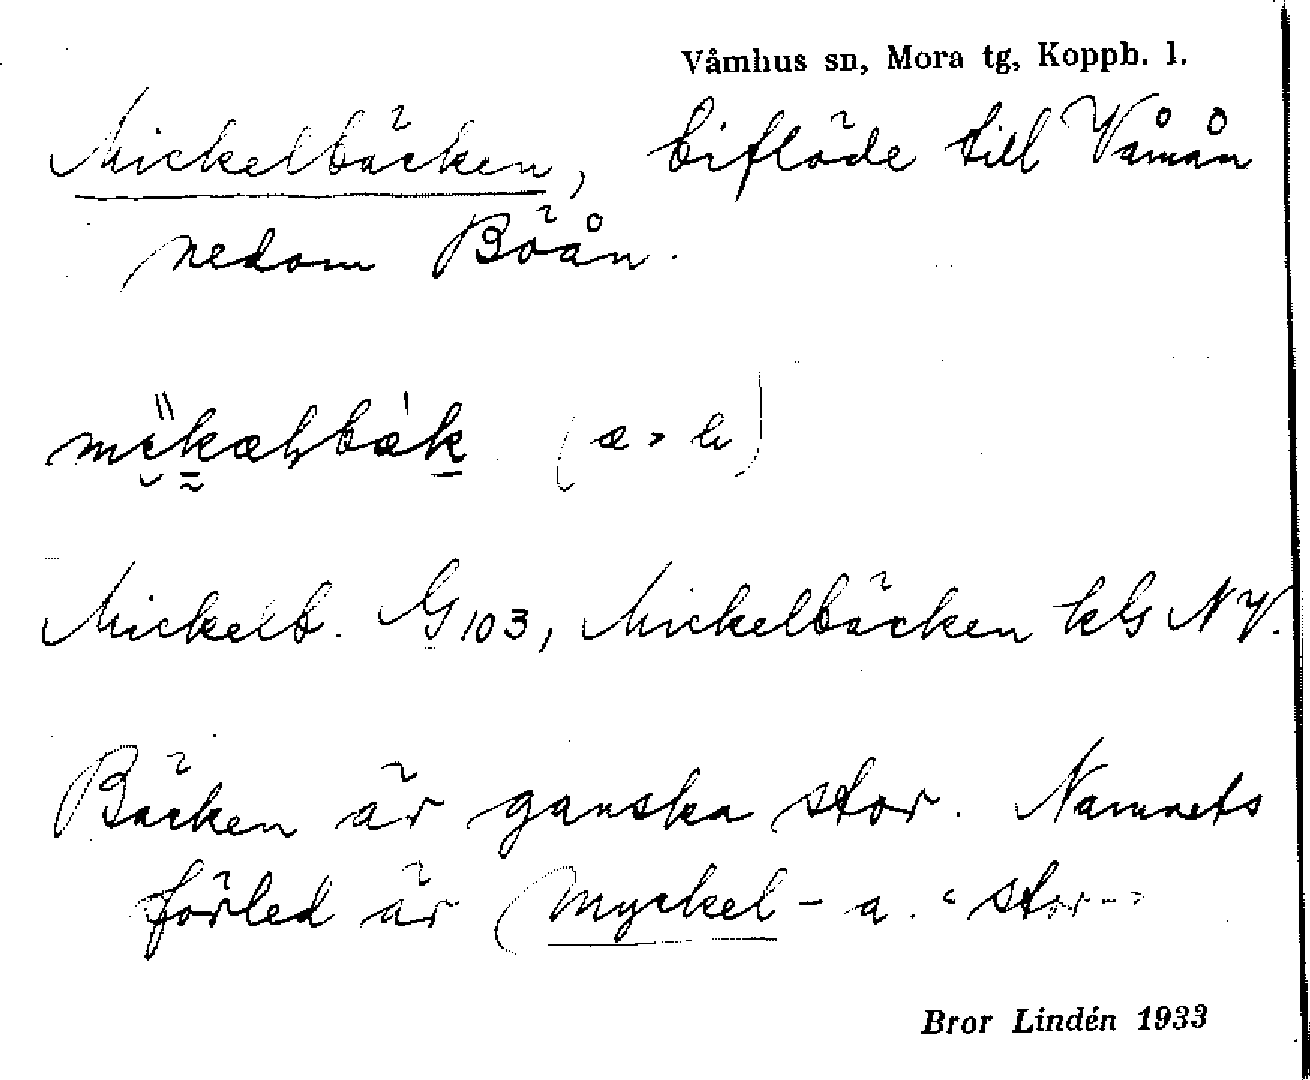 Våmhus sn, Mora tg, Koppb. l.
Mickelbäcken, biflöde till Våmån
nedom Böån.
Mickelb. G 103, Mickelbäcken kls NV.
Bäcken är ganska stor. Namnets
förled är Myckel- a. "stor-"
Bror Lindén 1933